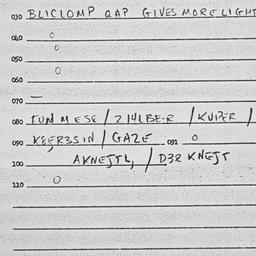 030 BLICLOMP QAP GIVES MORE LIGHT
040 O
O
050
060 O
070 —
080 FUN MESE / Z14LBE-R / KUPER /
090 KEER3SIN / GAZE 091 O
100 AKNEJTL, / D32 KNEJT
110 O